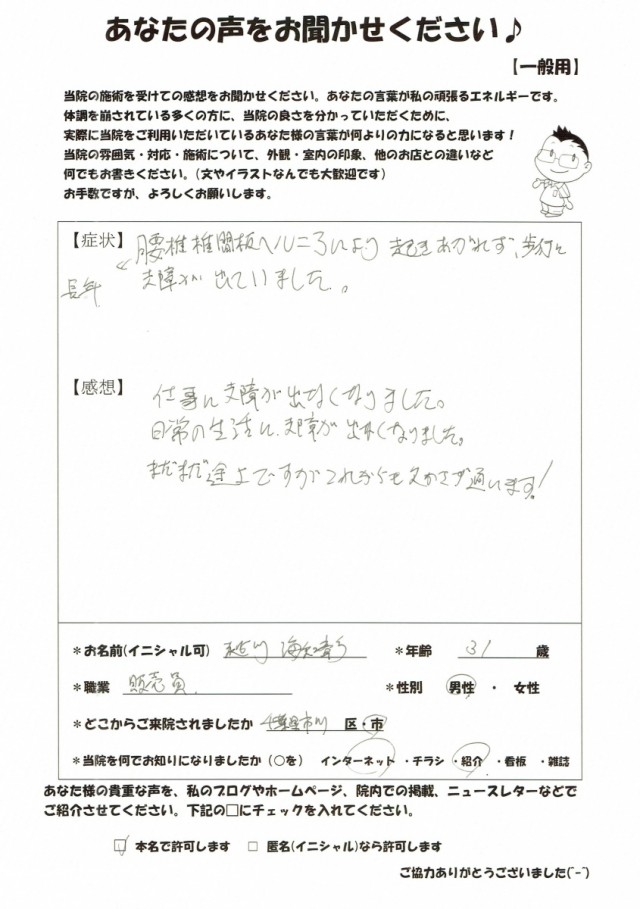 あなたの声をお聞かせください♪
【一般用】
当院の施術を受けての感想をお聞かせください。あなたの言葉が私の頑張るエネルギーです。
体調を崩されている多くの方に、当院の良さを分かっていただくために、
実際に当院をご利用いただいているあなた様の言葉が何よりの力になると思います！
当院の雰囲気・対応・施術について、外観・室内の印象、他のお店との違いなど
何でもお書きください。（文やイラストなんでも大歓迎です）
お手数ですが、よろしくお願いします。
【症状】 腰椎椎間板ヘルニアにより 起きあがれず、歩行に
長年 支障が出ていました。
【感想】 仕事に支障が出なくなりました。
日常の生活に支障が出なくなりました。
まだまだ途上ですがこれからも欠かさず通います！
＊お名前(イニシャル可) ＊年齢 31 歳
＊職業 販売員 ＊性別 男性 ・ 女性
＊どこからご来院されましたか 千葉県市川 区・市
＊当院を何でお知りになりましたか（○を） インターネット ・チラシ ・紹介 ・看板 ・雑誌
あなた様の貴重な声を、私のブログやホームページ、院内での掲載、ニュースレターなどで
ご紹介させてください。下記の□にチェックを入れてください。
☑ 本名で許可します □ 匿名(イニシャル)なら許可します
ご協力ありがとうございました(˘-˘)